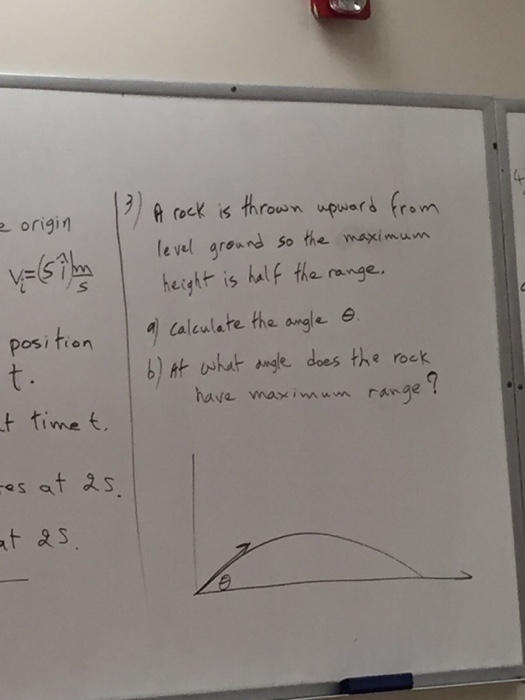 origin
Vi=(5 î) m/s
position
t.
at time t.
at 2s.
at 2s.
3) A rock is thrown upward from
level ground so the maximum
height is half the range.
a) Calculate the angle θ.
b) At what angle does the rock
have maximum range?
θ